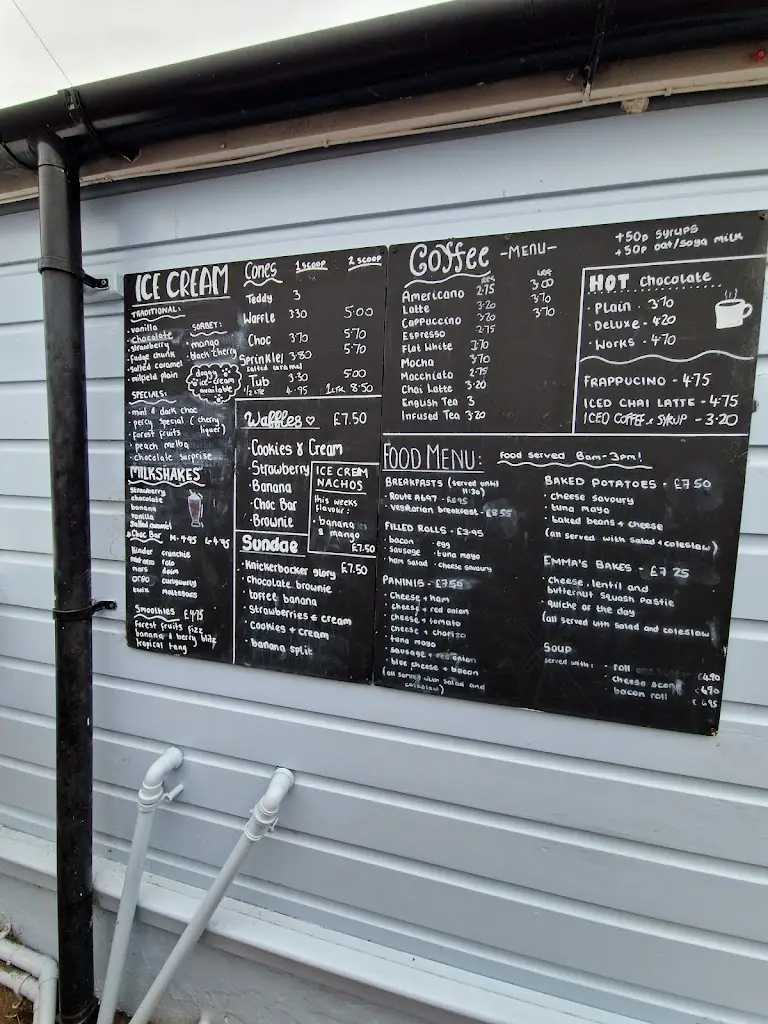 ICE CREAM
TRADITIONAL:
· vanilla
· chocolate
· strawberry
· fudge chunk
· salted caramel
· milfield plain
SORBET:
· mango
· black cherry
doggy
ice-cream
available
SPECIALS:
· mint & dark choc
· percy special (cherry
liquer)
· forest fruits
· peach melba
· chocolate surprise
MILKSHAKES
Strawberry
chocolate
banana
vanilla
Salted caramel
Choc Bar M-4.95 L-4.95
Kinder crunchie
rolo
mars daim
oreo curlywurly
twix maltesers
Smoothies £4.75
forest fruits fizz
banana & berry blitz
tropical tang
Cones 1 SCOOP 2 SCOOP
Teddy 3
Waffle 3.30 5.00
Choc 3.70 5.70
Sprinkle/ 3.80 5.70
Salted caramel
Tub 3.30 5.00
1/2 LTR 4.95 1 LTR 8.50
Waffles £7.50
· Cookies & Cream
· Strawberry
· Banana
· Choc Bar
· Brownie
ICE CREAM
NACHOS
this weeks
flavour:
· banana
& mango
£7.50
Sundae
· Knickerbocker glory £7.50
· chocolate brownie
· toffee banana
· strawberries & cream
· cookies & cream
· banana split
Coffee -MENU-
+50p syrups
+50p oat/soya milk
REG LRG
Americano 2.75 3.00
Latte 3.20 3.70
Cappuccino 3.20 3.70
Espresso 2.75
Flat White 3.70
Mocha 3.70
Macchiato 2.75
Chai Latte 3.20
English Tea 3
Infused Tea 3.20
HOT Chocolate
· Plain · 3.70
· Deluxe · 4.20
· Works · 4.70
FRAPPUCINO - 4.75
ICED CHAI LATTE - 4.75
ICED COFFEE & SYRUP - 3.20
FOOD MENU: Food served 8am-3pm!
BREAKFASTS (served until
11:30)
· ROUTE A697 - £8.95
· vegetarian breakfast - £8.55
FILLED ROLLS - £3.95
bacon · egg
· sausage · tuna mayo
ham salad · cheese savoury
PANINIS - £7.50
· cheese + ham
· cheese + red onion
· cheese + tomato
· cheese + chorizo
· tuna mayo
· sausage + red onion
· blue cheese + bacon
(all served with salad and
coleslaw)
BAKED POTATOES - £7.50
· cheese savoury
· tuna mayo
· baked beans + cheese
(all served with salad + coleslaw)
EMMA'S BAKES - £7.25
· cheese, lentil and
butternut squash pastie
· quiche of the day
(all served with salad and coleslaw)
SOUP
served with: · roll £4.90
· cheese scone £4.90
· bacon roll £6.95